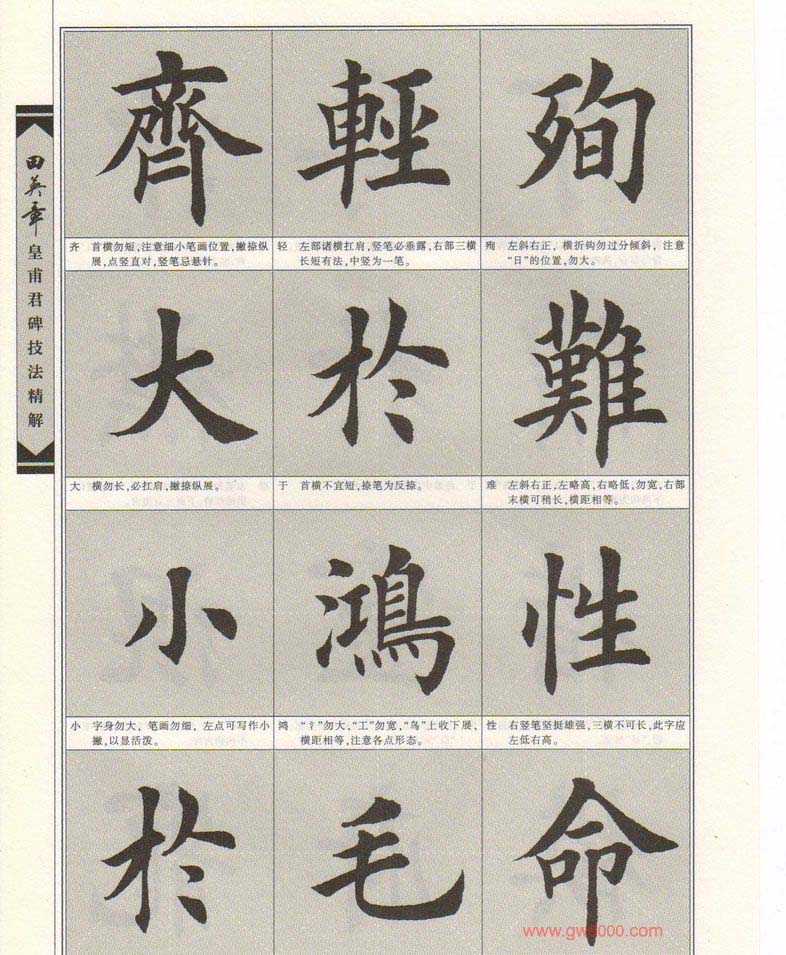 田英章
皇甫君碑技法精解
殉
輕
齊
殉 左斜右正，横折钩勿过分倾斜，注意
“日”的位置，勿大。
轻 左部诸横扛肩，竖笔必垂露，右部三横
长短有法，中竖为一笔。
齐 首横勿短，注意细小笔画位置，撇捺纵
展，点竖直对，竖笔忌悬针。
難
於
大
难 左斜右正，左略高，右略低，勿宽，右部
末横可稍长，横距相等。
于 首横不宜短，捺笔为反捺。
大 横勿长，必扛肩，撇捺纵展。
性
鴻
小
性 右竖笔坚挺雄强，三横不可长，此字应
左低右高。
鸿 “氵”勿大，“工”勿宽，“鸟”上收下展，
横距相等，注意各点形态。
小 字身勿大，笔画勿细，左点可写作小
撇，以显活泼。
命
毛
於
www.gw5000.com